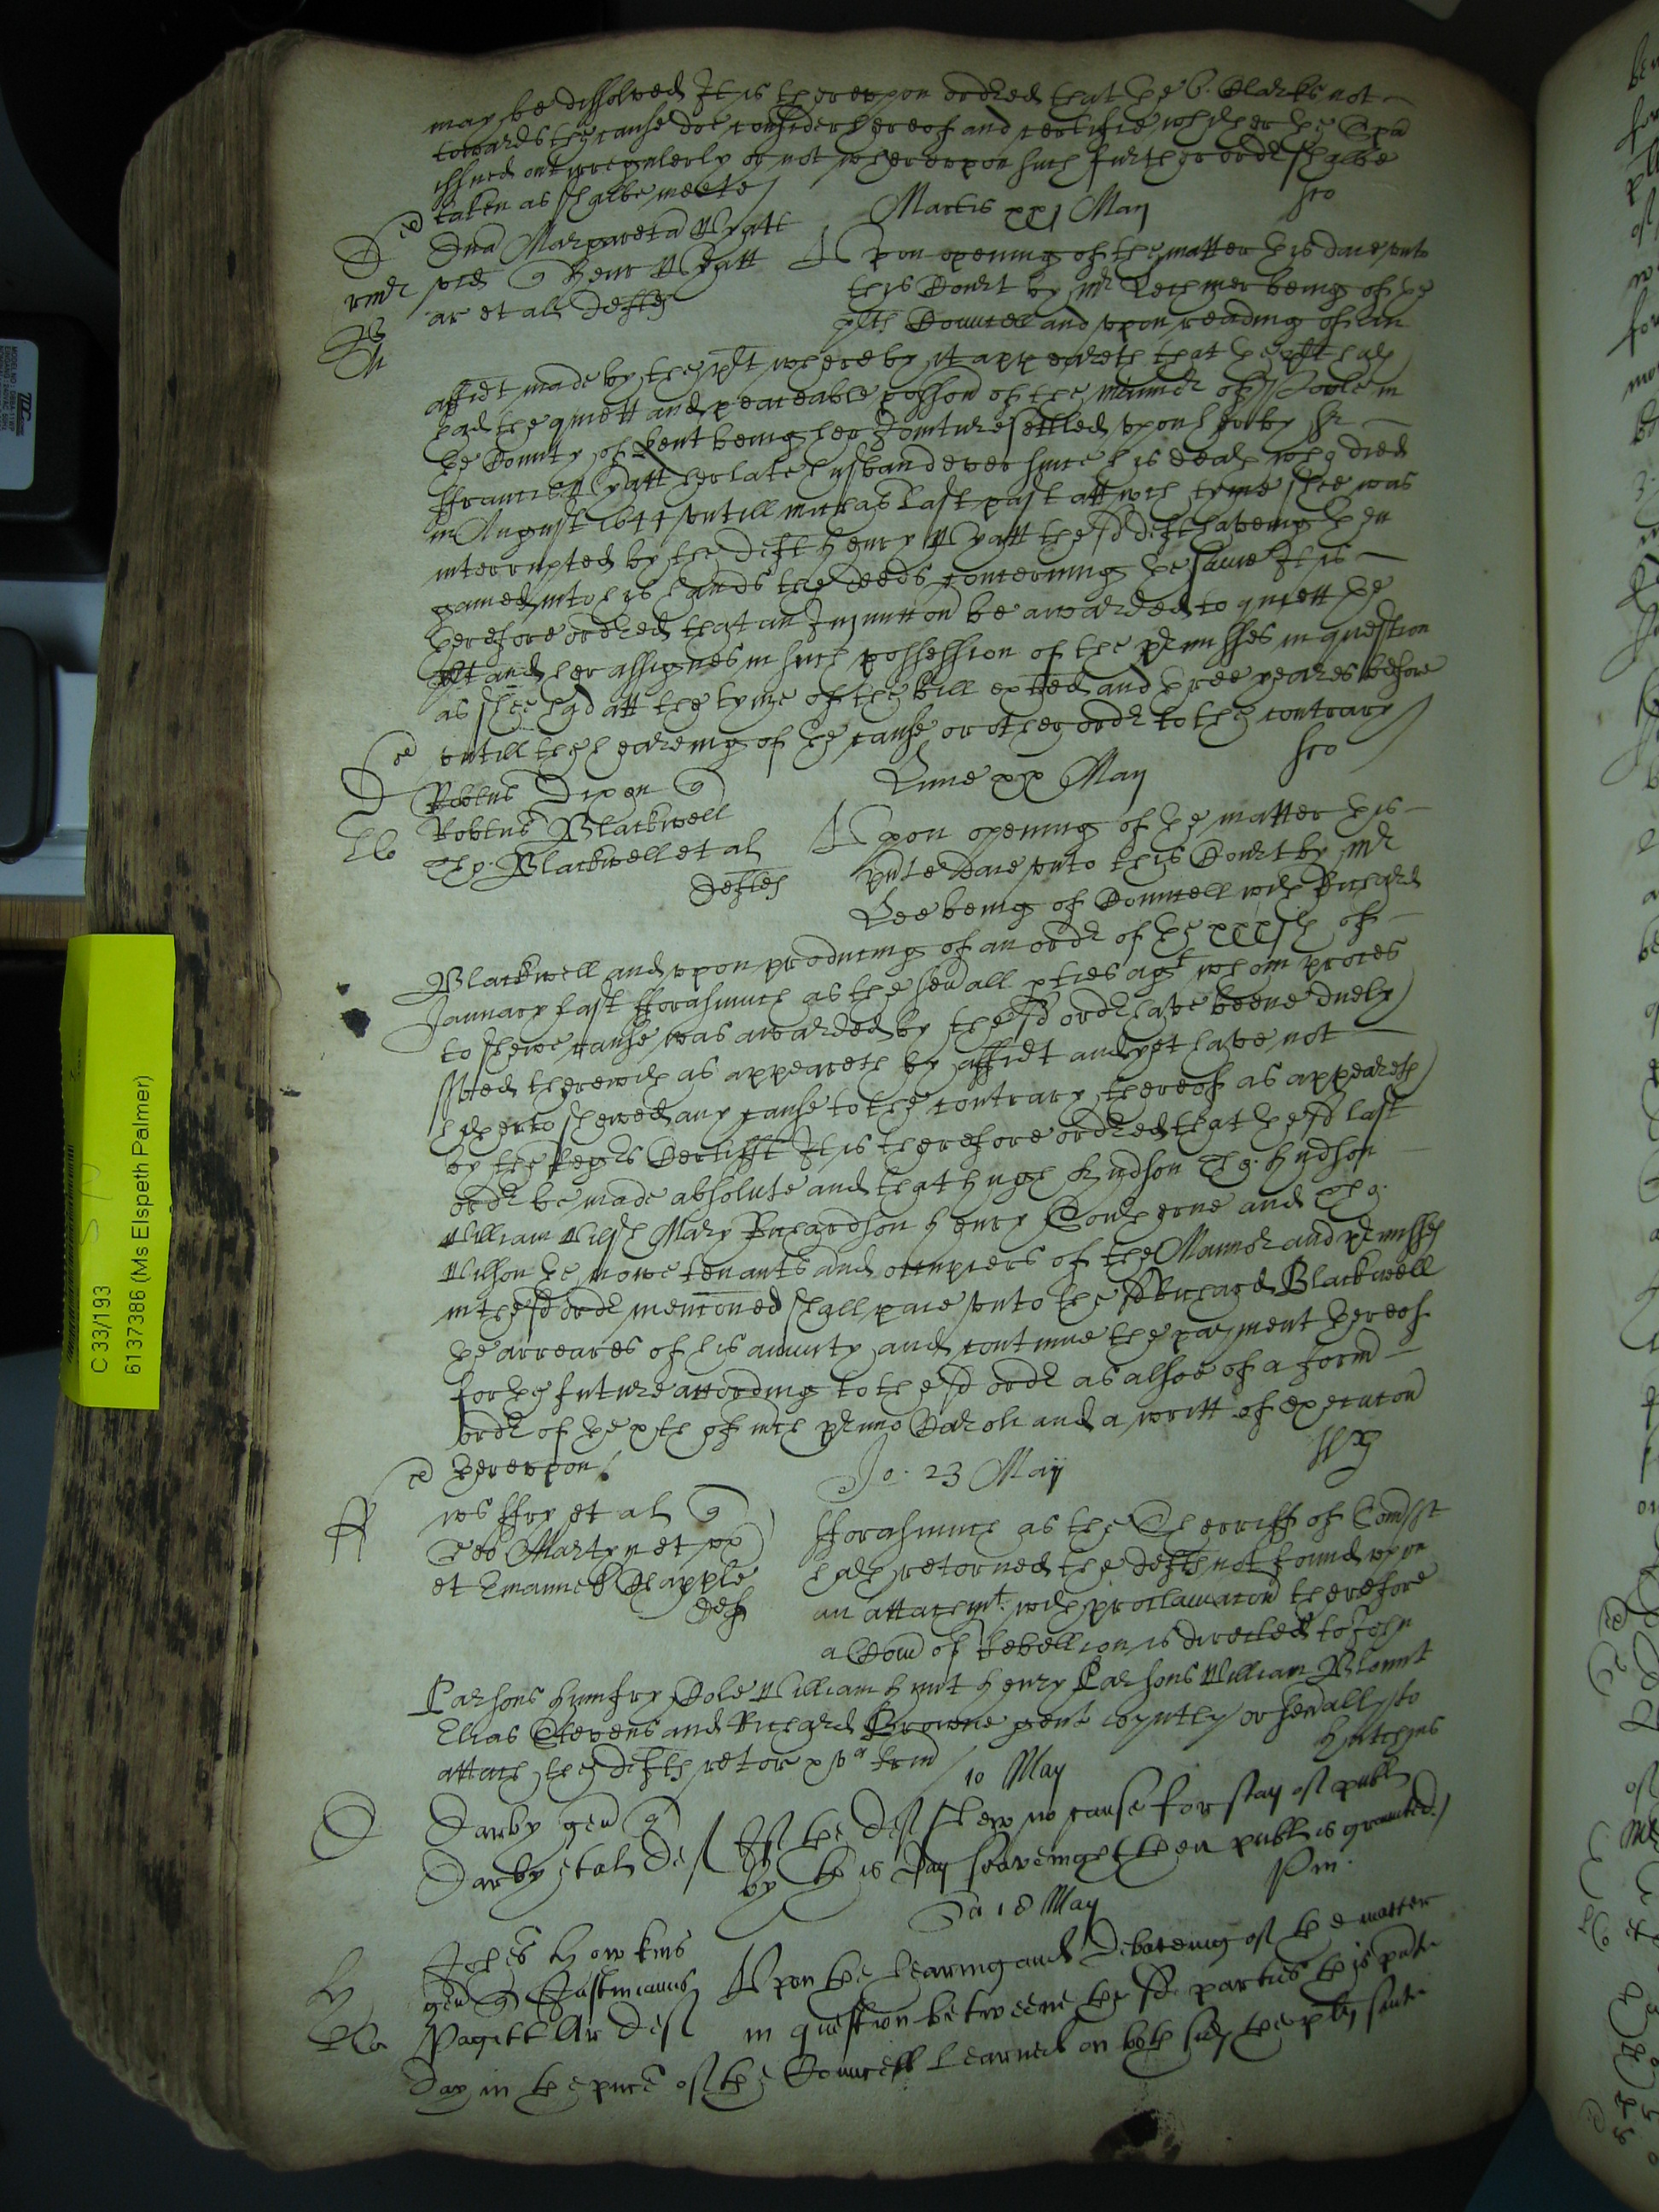 may be dissolved It is thereupon ordred that ye 6. Clarks not
towards the cause doe consider hereof and certifie whether ye Spa
issued out irregulerly or not whereupon such further ordr shalbe
taken as shalbe meete
Martis xxj Maij
Dna Margareta Wyatt
vid q Henr Wyatt
ar et al deftes
Upon opening of the matter this daie unto
this Court by Mr Lechmer being of ye
plts Councell and upon reading of an
affidt made by the plt whereby it appeareth that ye plt hath
had the quiett and peaceable possion of the mannor of in
ye County of Kent being her Jointure settled upon her by Sr
Francis Wyatt her late husband ever since his death who died
in August 1644 untill michas last past att wch tyme shee was
interrupted by the deft Henry Wyatt the sd deft haveing then
gained into his hands the deeds concerning ye same It is
therefore ordred that an Injunccon be awarded to quiett ye
plt and her assignes in such possession of the prmisses in question
as shee had att the tyme of the bill exhited and three yeares before
untill the heareing of ye cause or other ordr to the contrary
Lune xx Maij
Robtus Dixon q
Robtus Blackwell
Tho. Blackwell et al
deftes
Upon opening of ye matter this
pnte daie unto this Court by Mr
Lee being of Councell with Richard
Blackwell and upon producing of an ordr of ye xxxth of
January last Forasmuch as the sevall pties agt whom proces
to shewe cause was awarded by the sd ordr have beene duely
sved therewth as appeareth by affidt and yet have not
hitherto shewed any cause to the contrary thereof as appeareth
by the Regrs Certifft It is therefore ordred that ye sd last
ordr be made absolute and that Hugh Hudson Tho. Hudson
William Mary Richardson Henry and Tho.
Wilson ye nowe tenants and occupiers of the Mannor and prmisses
in the sd ordr mencioned shall paie unto the sd Richard Blackwell
ye arreares of his anuity and continue the payment thereof
for ye future according to the sd ordr as alsoe of a form
ordr of ye xth of primo Caroli and a writt of execucon
thereupon
Jo. 23 Maij
ws Fry et al q
Martyn et ux
et Emanuel Chapple
def
Forasmuch as the Sherriff of Com
hath retorned the defts not found upon
an attachmt. with proclamacon therefore
a Com of Rebellion is directed to John
Parsons Humfry Cole William Hunt Henry Parsons William Blount
Elias Stevens and Richard Browne gent joyntly or sevally to
attach the defts retor xva trin
Hutchins
10 May
Darby gen q
Darby et al def
If the def shew no cause for stay of publ
by this day seaveinght then publ is granted
Sa 18 May
Johes Howkins
gen q Justinianus
Pagitt Ar def
Upon the hearing and debateing of the matter
in question betweene the sd parties this pnte
Day in the pnce of the Councell learned on both sides they by sante
C 33/193
6137386 (Ms Elspeth Palmer)